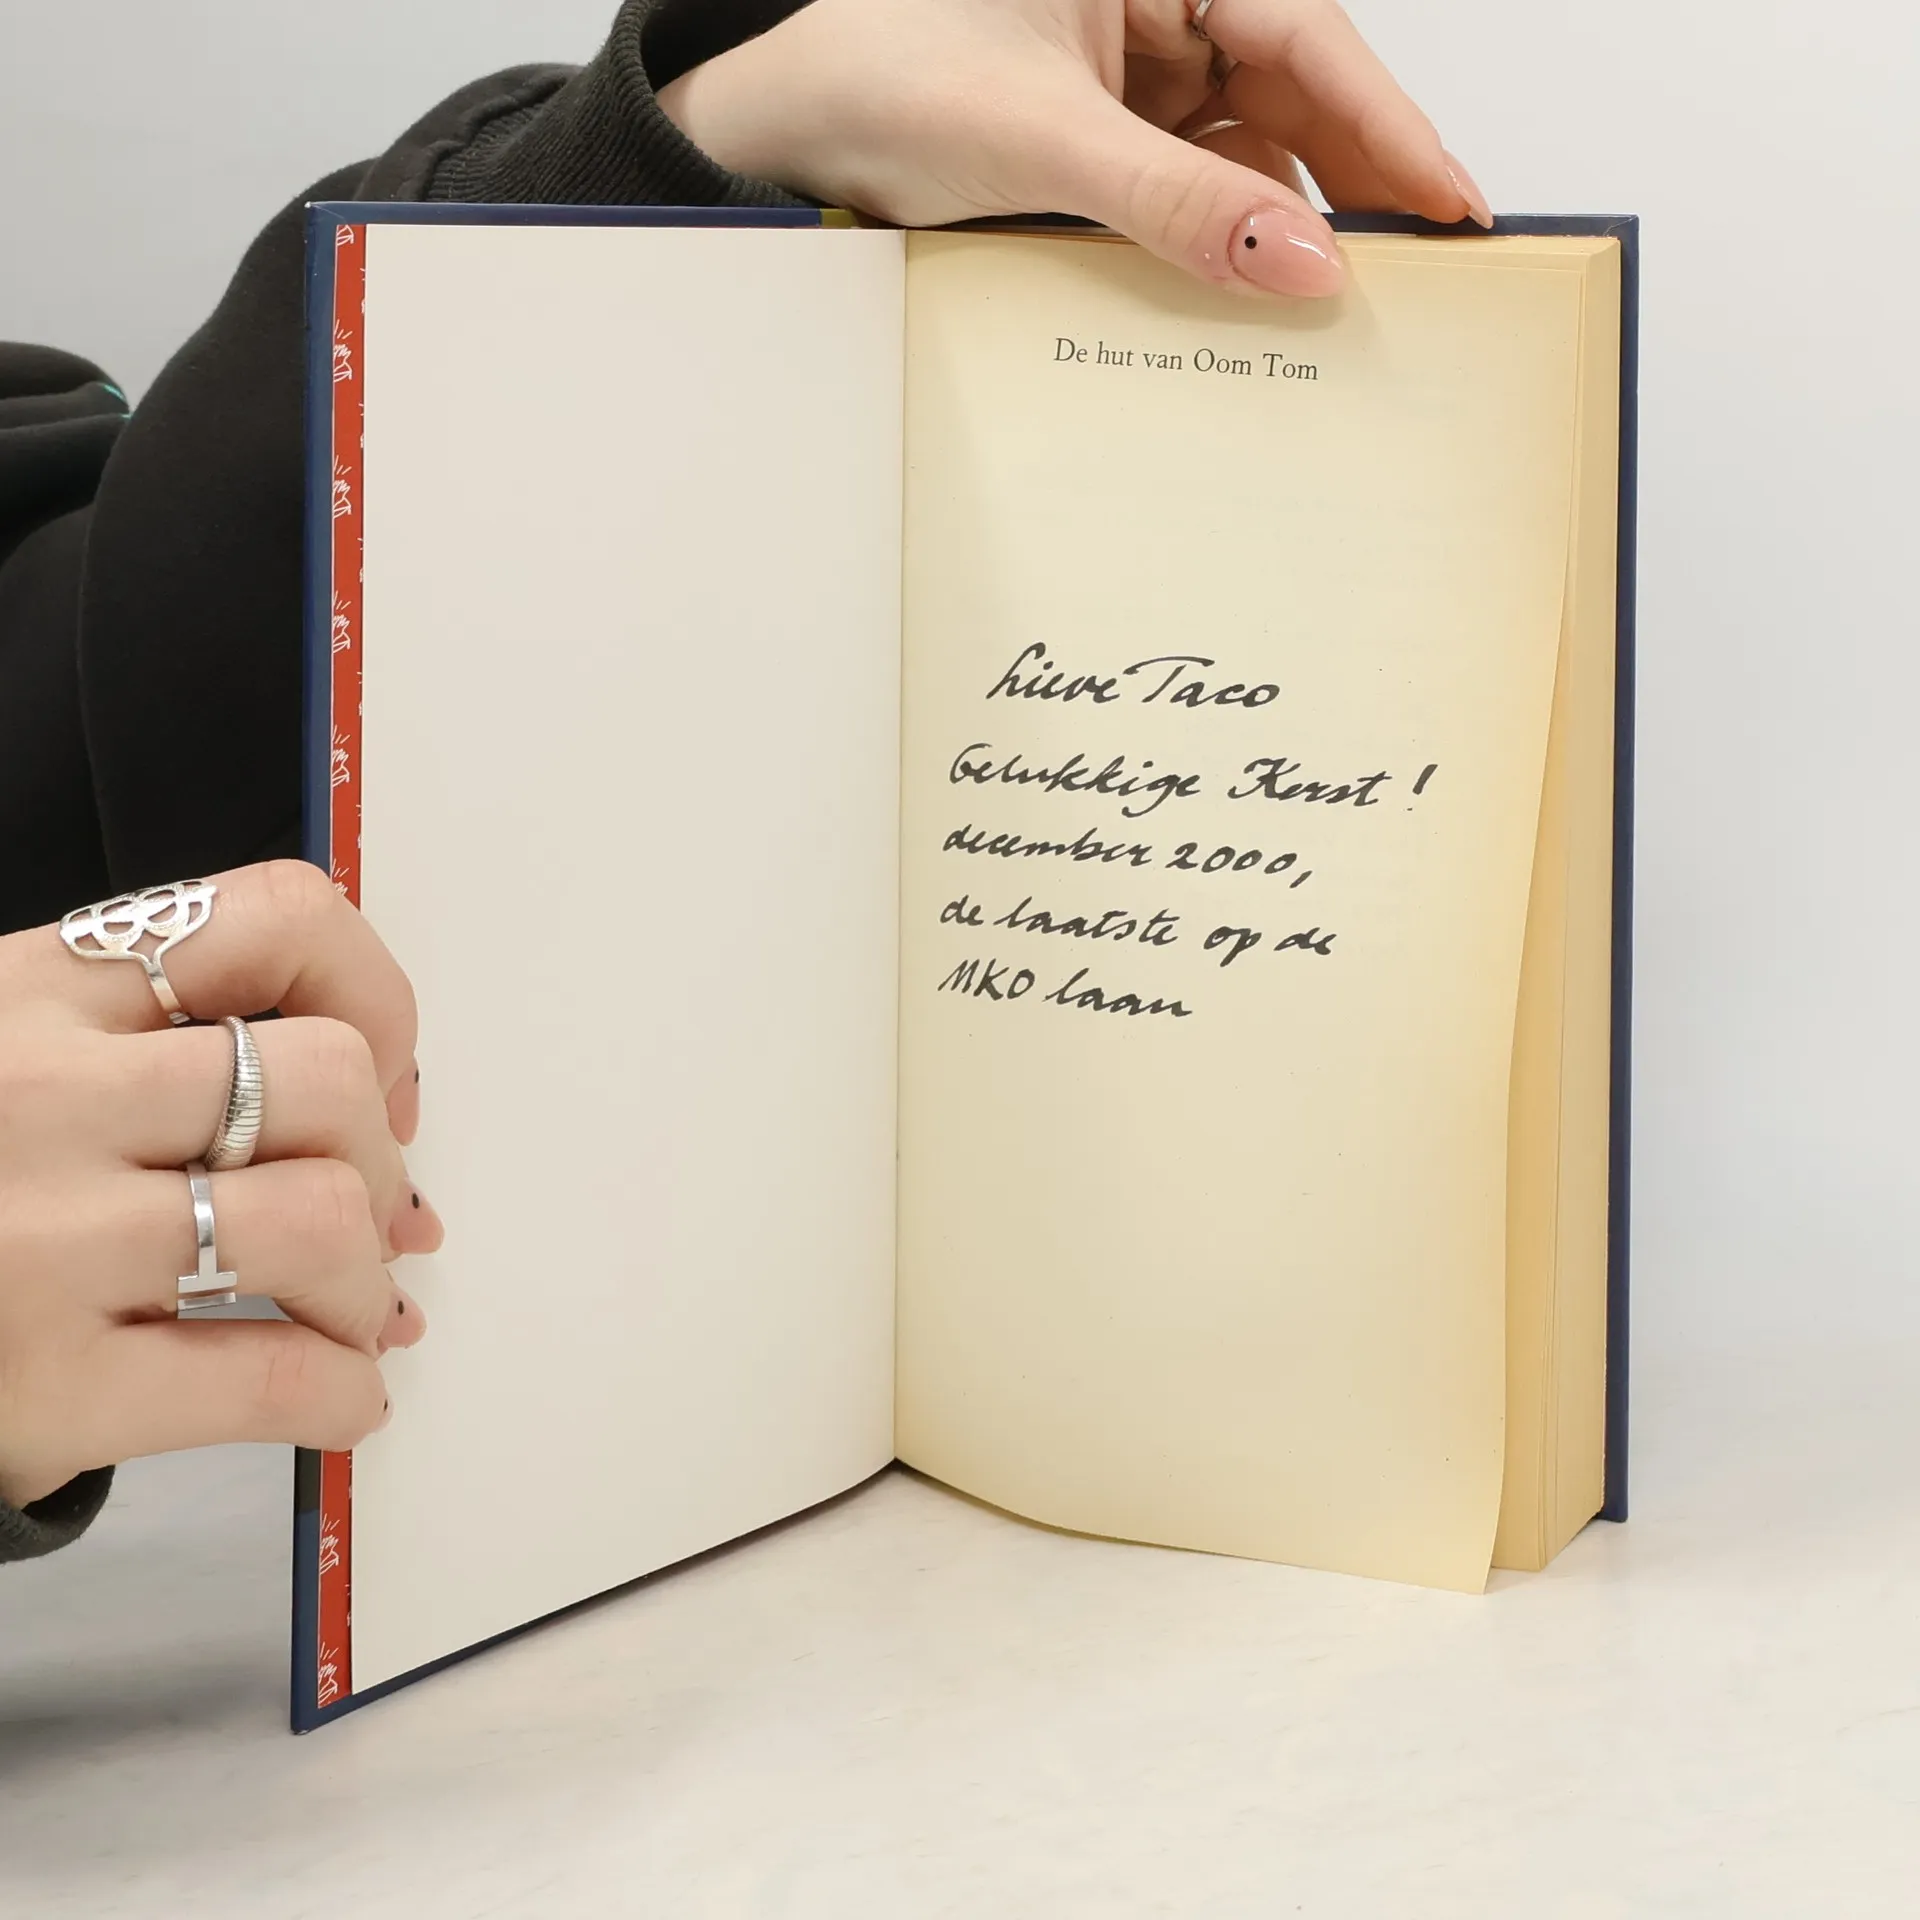 De hut van Oom Tom
Lieve Taco
Gelukkige Kerst !
december 2000,
de laatste op de
MKO laan